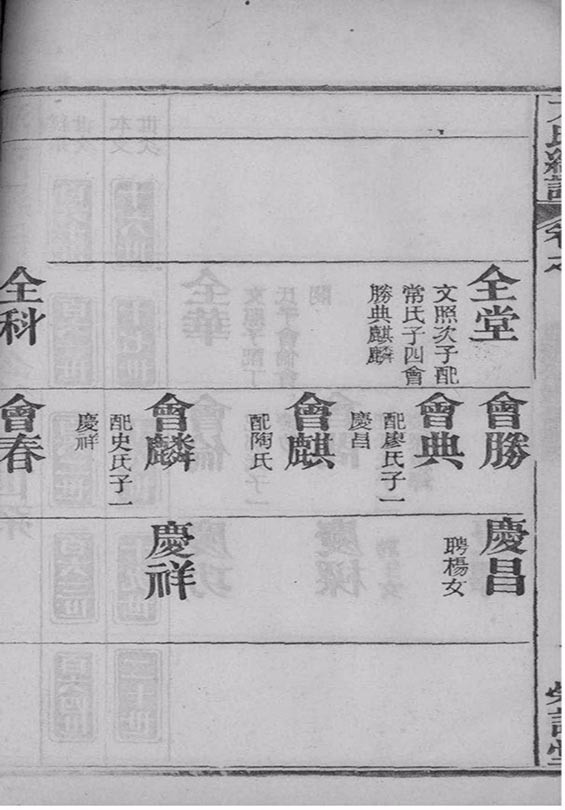 全堂
文照次子配
常氏子四會
勝典麒麟
全科
會勝
會典
配廖氏子一
慶昌
會麒
配陶氏
會麟
配史氏子一
慶祥
會春
慶昌
聘楊女
慶祥